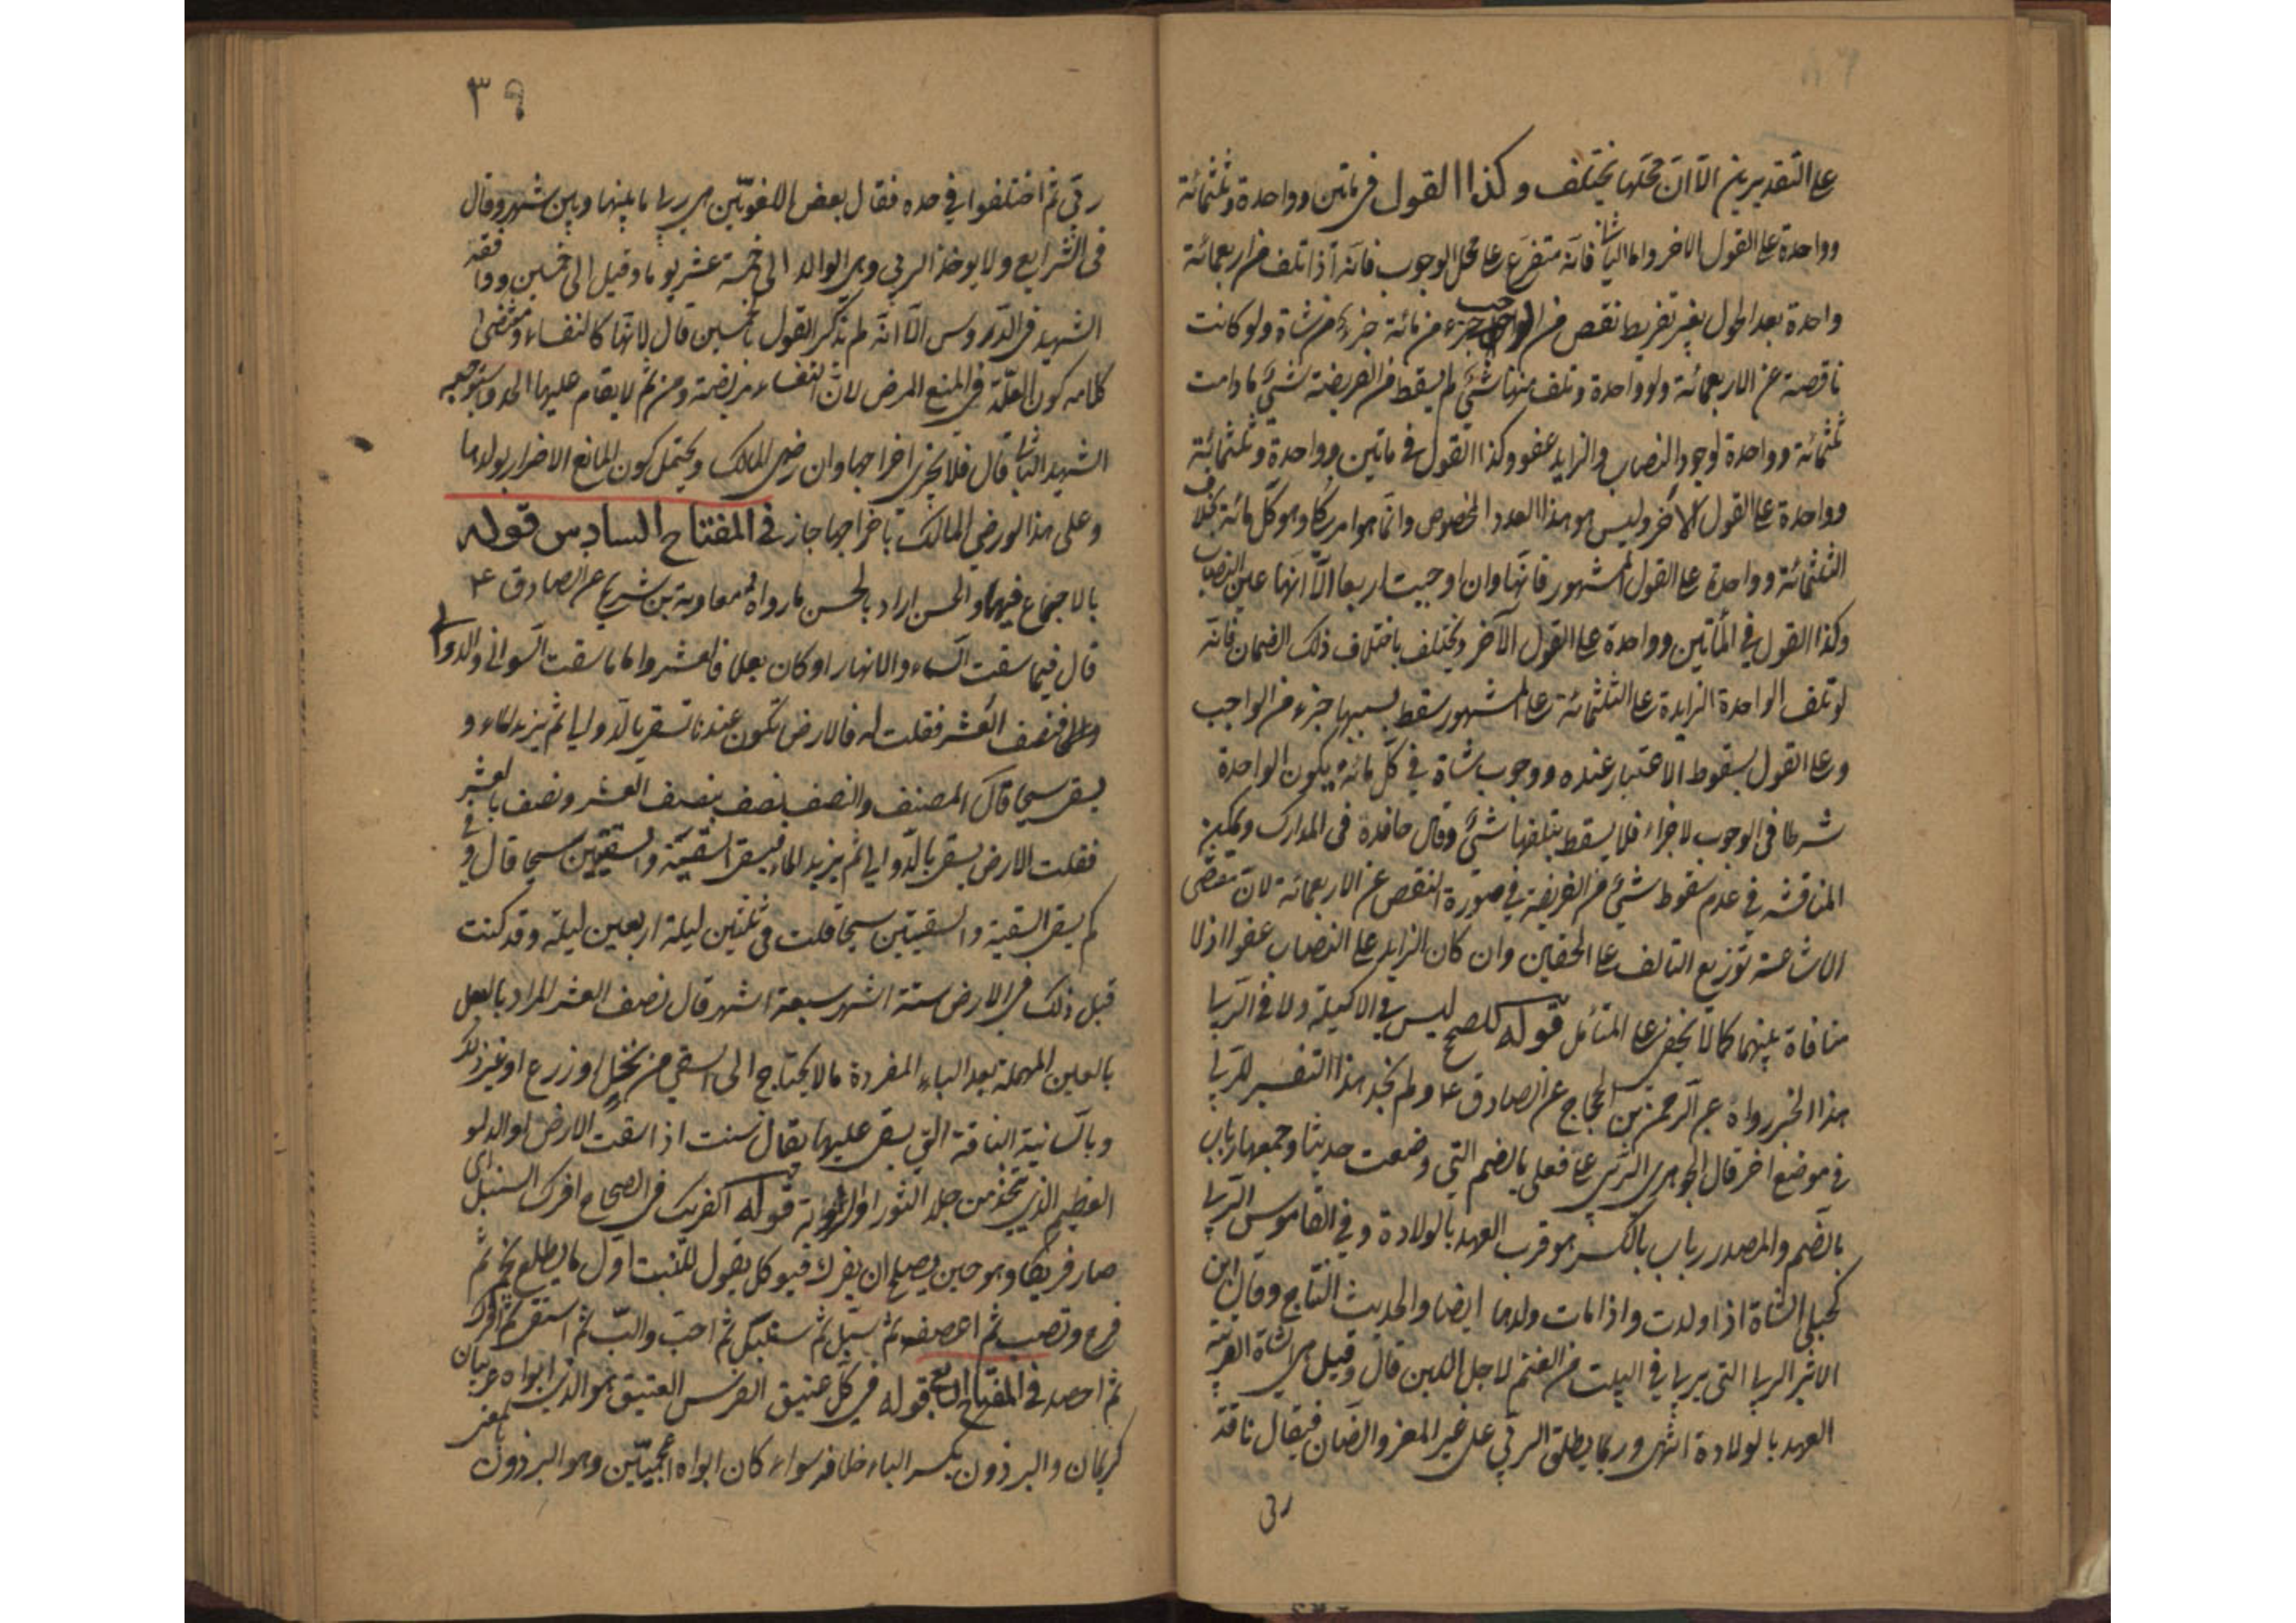 على التقديرين الا ان محلها يختلف وكذا القول في ماتين وواحدة وثلثمائة
وواحدة على القول الاخر واما الثاني فانه متفرع على محل الوجوب فانه اذا تلف من اربعمائة
واحدة بعد الحول بغير تفريط نقص من الواجب جزء من مائة جزء من شاة ولو كانت
ناقصة عن الاربعمائة ولو واحدة وتلف منها شئ لم يسقط من الفريضة شئ ما دامت
ثلثمائة وواحدة لوجود النصاب والزايد عفو وكذا القول في ماتين وواحدة وثلثمائة
وواحدة على القول الاخر وليس هو هذا العدد المخصوص وانما هو امر كلي وهو كل مائة بخلاف
الثلثمائة وواحدة على القول المشهور فانها وان اوجبت اربعا الا انها عين النصاب
وكذا القول في الماتين وواحدة على القول الآخر ويختلف باختلاف ذلك الضمان فانه
لو تلف الواحدة الزايدة على الثلثمائة على المشهور سقط بسببها جزء من الواجب
وعلى القول بسقوط الاعتبار عنده ووجوب شاة في كل مائة يكون الواحدة
شرطا في الوجوب لا جزاء فلا يسقط بتلفها شئ وقال حافده في المدارك ويمكن
المناقشه في عدم سقوط شئ من الفريضة في صورة النقص عن الاربعمائة لان مقتضى
الاشاعة توزيع التالف على الحقين وان كان الزايد على النصاب عفوا اذ لا
منافاة بينهما كما لا يخفى على المتأمل قوله للصحيح ليس في الاكيلة ولا في الربى
هذا الخبر رواه عبد الرحمن بن الحجاج عن الصادق ع ولم نجد هذا التفسير للربى
في موضع اخر قال الجوهري الربى على فعلى بالضم التي وضعت حديثا وجمعها رباب
بالضم والمصدر رباب بالكسر هو قرب العهد بالولادة وفي القاموس الربى
كحبلى الشاة اذا ولدت واذا مات ولدها ايضا والحديث النتاج وقال ابن
الاثير الربى التي تربى في البيت من الغنم لاجل اللبن قال وقيل هي الشاة القريبة
العهد بالولادة انتهى وربما يطلق الربى على غير المعز والضان فيقال ناقة
ربى
٣٩
ربى ثم اختلفوا في حده فقال بعض اللغويين هي ربى ما بينها وبين شهر وقال
في الشرايع ولا يوخذ الربى وهي الوالد الى خمسة عشر يوما وقيل الى خمسين ووافقه
الشهيد في الدروس الا انه لم يذكر القول بالخمسين قال لانها كالنفساء ومقتضى
كلامه كون العلة في المنع المرض لان النفساء مريضة ومن ثم لا يقام عليها الحد واستوجبه
الشهيد الثاني قال فلا يجزي اخراجها وان رضى المالك ويحتمل كون المانع الاضرار بولدها
وعلى هذا لو رضي المالك باخراجها جاز في المفتاح السادس قوله
بالاجماع فيهما والحسن اراد بالحسن ما رواه معاوية بن شريح عن الصادق ع
قال فيما سقت السماء والانهار او كان بعلا فالعشر واما ما سقت السواني والدوالي
فنصف العشر فقلت له فالارض تكون عندنا تسقى بالدوالي ثم يزيد الماء و
يسقى سيحا قال المصنف والنصف نصف بنصف العشر ونصف بالعشر
فقلت الارض يسقى بالدوالي ثم يزيد الماء فيسقى السقية والسقيتين سيحا قال وفي
كم يسقى السقية والسقيتين سيحا قلت في ثلثين ليلة اربعين ليلة وقد مكثت
قبل ذلك في الارض ستة اشهر سبعة اشهر قال نصف العشر المراد بالبعل
بالعين المهملة بعد الباء المفردة ما لا يحتاج الى السقي من نخل او زرع او غير ذلك
وبالسانية الناقة التي يسقى عليها يقال سنت اذا سقت الارض او الدلو
العظيم الذي يتخذ من جلد الثور قوله الفريك في الصحاح افرك السنبل اي
صار فريكا وهو حين يصلح ان يفرك فيوكل يقول للنبت اول ما يطلع نجم ثم
فرخ وقصب ثم اعصف ثم سبل ثم سنبل ثم احب والب ثم اسفى ثم افرك
ثم احصد في المفتاح السابع قوله في كل عتيق الفرس العتيق هو الذي ابواه عربيان
كريمان والبرذون بكسر الباء خلافه سواء كان ابواه اعجميين وهو البرذون